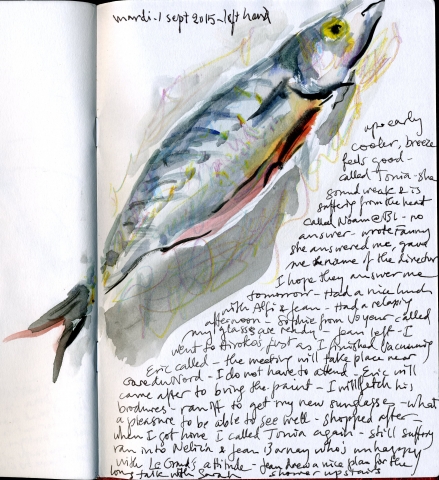 mardi - 1 sept 2015 - left hand
up early
cooler, breeze
feels good -
called Tonia - she
sound weak & is
suffering from the heat
called Noam @ BL - no
answer - wrote Fanny
she answered me, gave
me the name of the director
I hope they answer me
tomorrow - Had a nice lunch
with Alfi & Jean - Had a relaxing
afternoon - Sophie from Voyeur called
my glasses are ready - Jean left - I
went to Hirokos just as I finished vacuuming
Eric called - the meeting will take place near
Gare du Nord - I do not have to attend - Eric will
came after to bring the paint - I will fetch his
brochures - ran off to get my new sunglasses - what
a pleasure to be able to see well - shopped after
when I got home I called Tonia again - still suffering
ran into & Jean Barney who's unhappy
with Le Grand's attitude - Jean drew a nice plan for the
long talk with Sarah shower upstairs